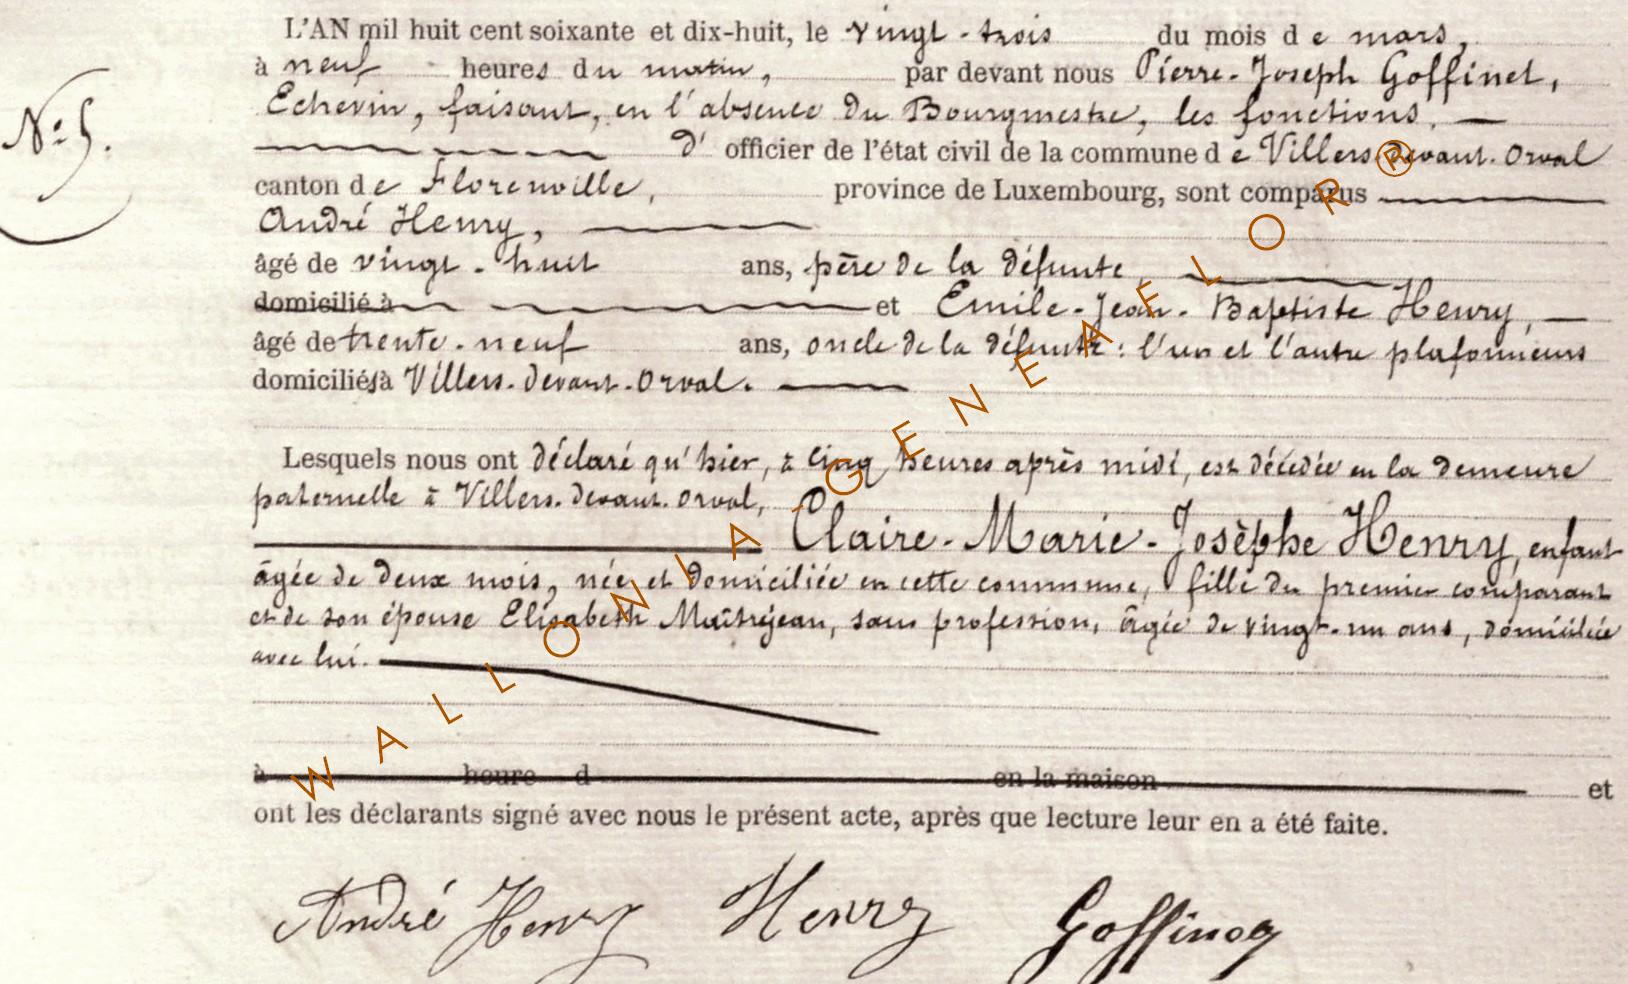 L'AN mil huit cent soixante et dix-huit, le vingt-trois du mois de mars,
à neuf heures du matin, par devant nous Pierre-Joseph Goffinet,
Echevin, faisant, en l'absence du Bourgmestre, les fonctions,
d' officier de l'état civil de la commune de Villers-devant-Orval
canton de Florenville, province de Luxembourg, sont comparus
André Henry,
âgé de vingt-huit ans, père de la défunte,
domicilié à et Emile-Jean-Baptiste Henry,
âgé de trente-neuf ans, oncle de la défunte : l'un et l'autre plafonneurs
domiciliés à Villers-devant-Orval.
N° 5.
Lesquels nous ont déclaré qu'hier, à cinq heures après midi, est décédée en la demeure
paternelle à Villers-devant-Orval,
Claire-Marie-Josèphe Henry, enfant
âgée de deux mois, née et domiciliée en cette commune, fille du premier comparant
et de son épouse Elisabeth Maîtrejean, sans profession, âgée de vingt-un ans, domiciliée
avec lui.
à heure d en la maison et
ont les déclarants signé avec nous le présent acte, après que lecture leur en a été faite.
André Henry Henry
WALLONIA-GENEAELOR®